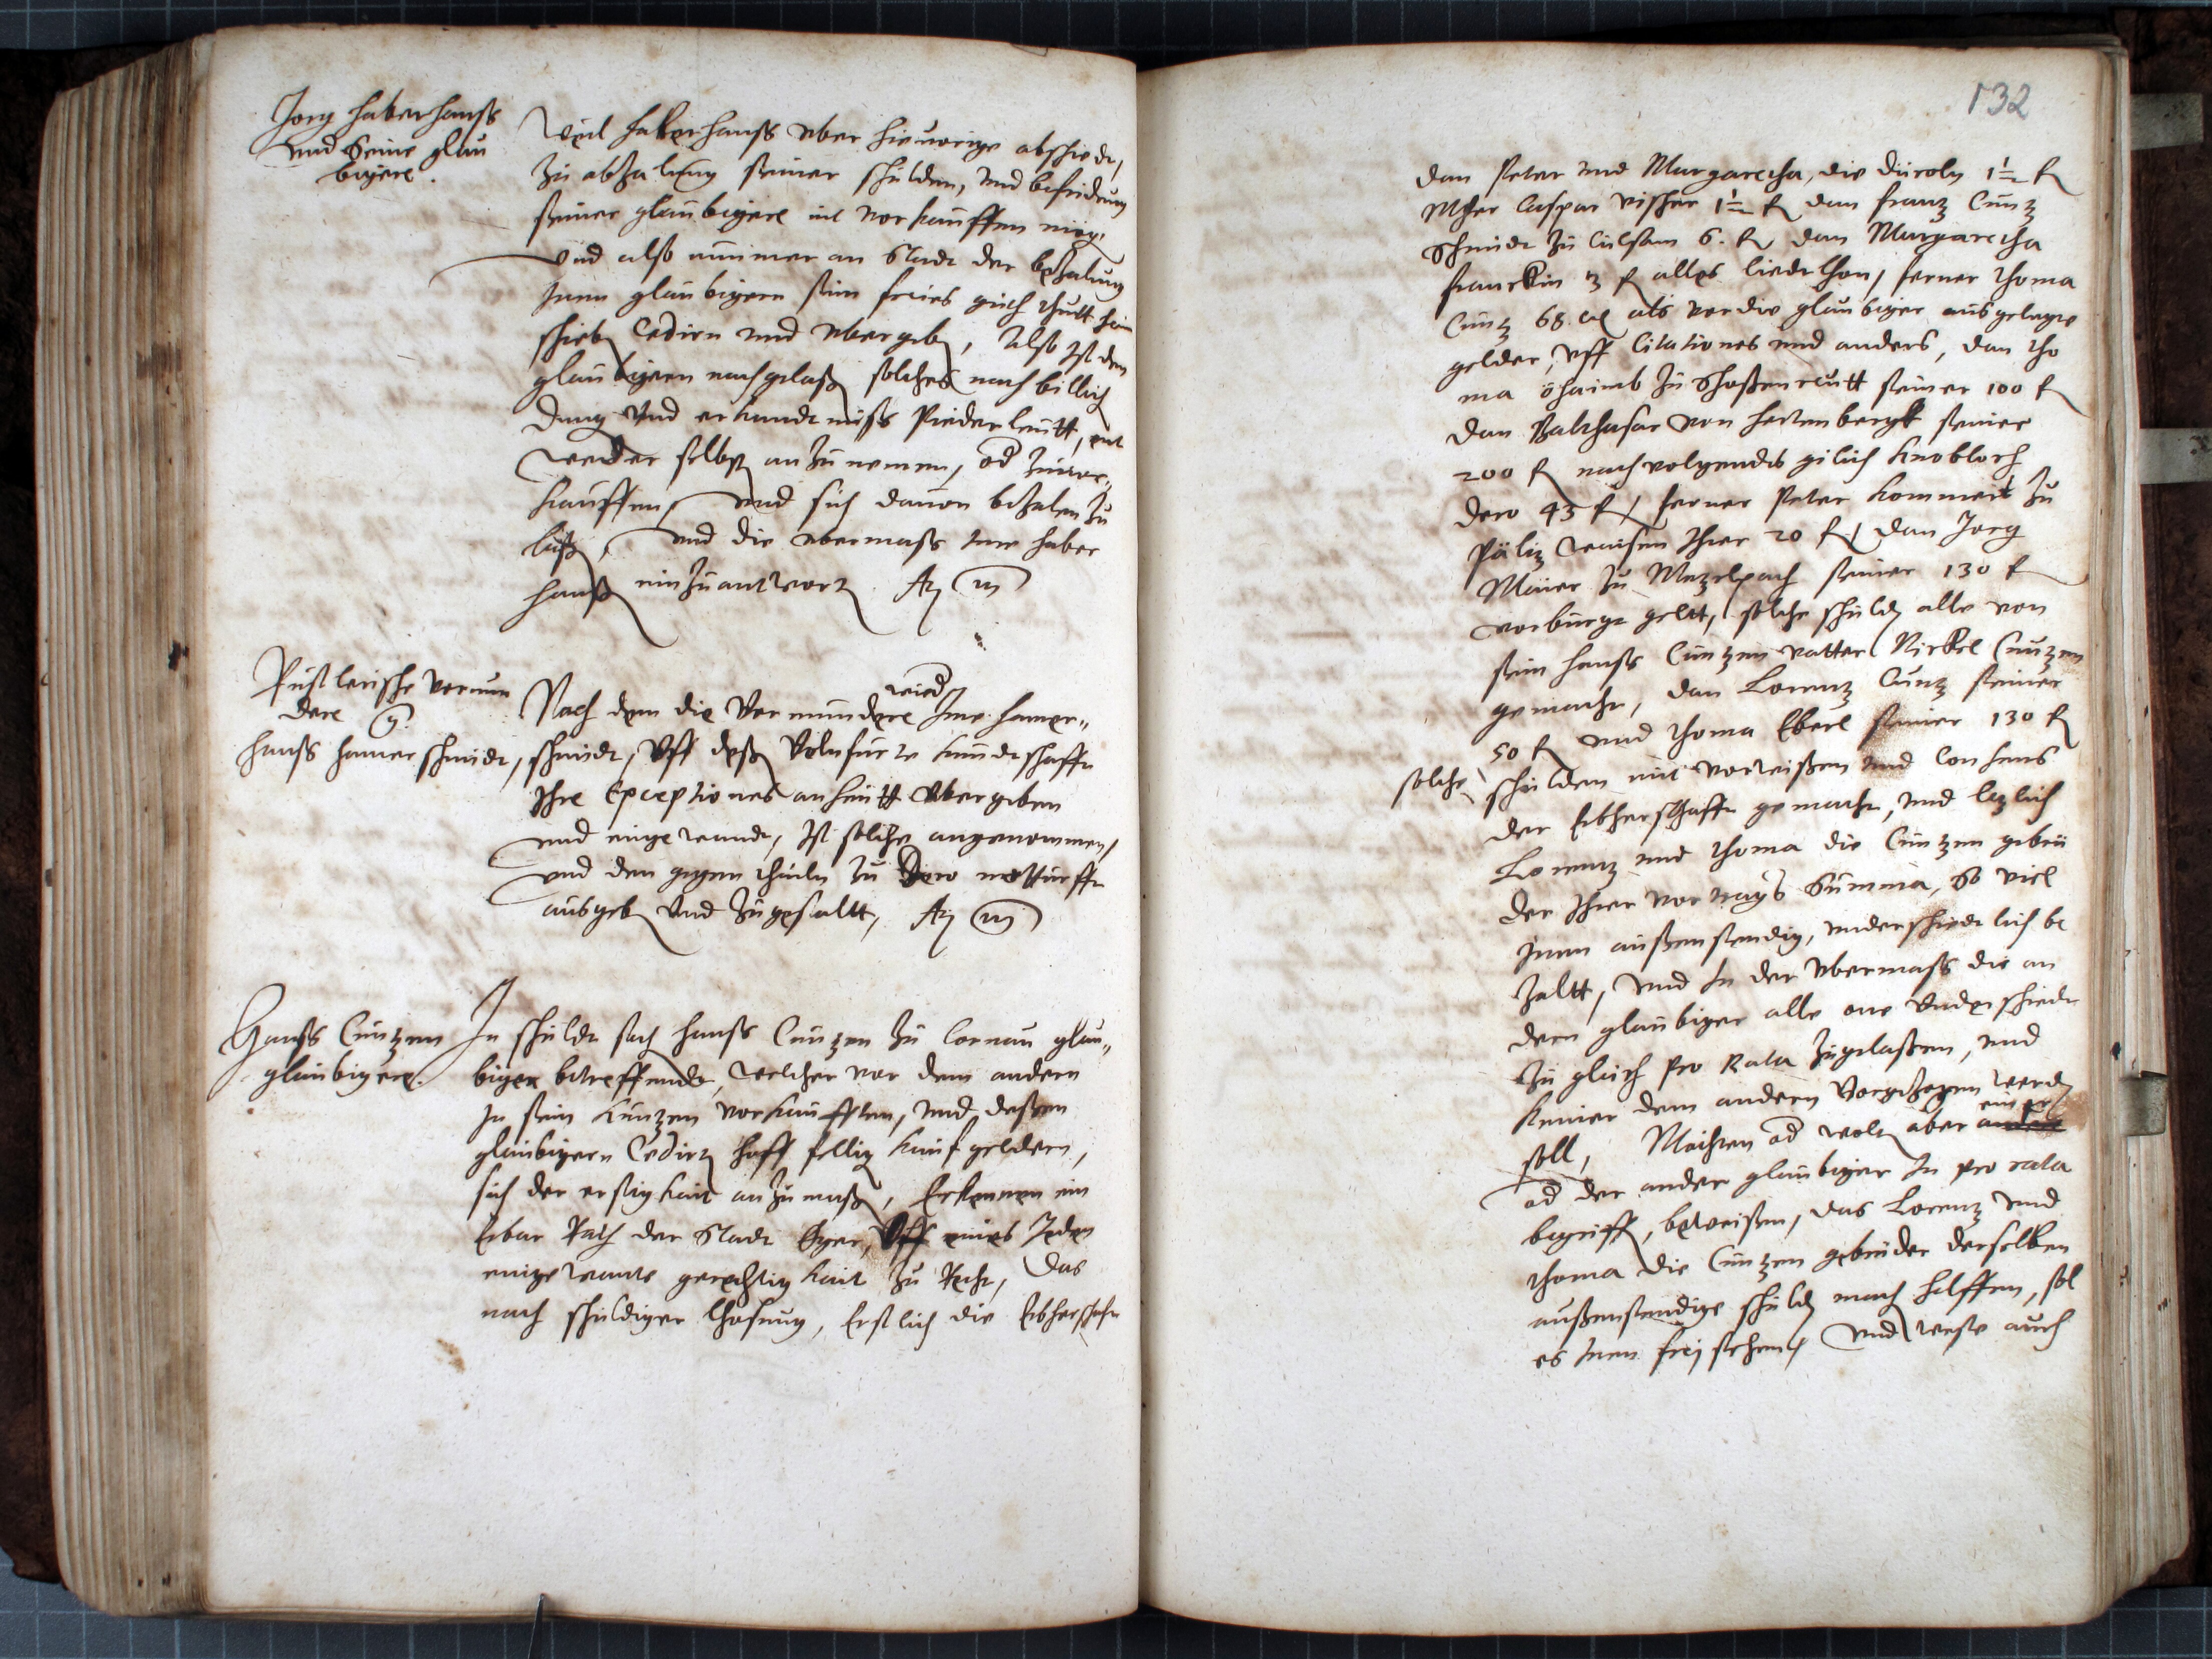 Jorg haberhanß
und Seine glau
bigere.
Weil haberhanß uber hieuorige abschiedt,
zu abzalung seiner schulden, und befridung
seiner glaubigere nit vorkauffen mög,
und also nimmer an Stadt der bezalung
Inen glaubigern sein freies guth thutt heim
schieben Cediren und ubergeben, Also ist den
glaubigern nachgelaßen solches nach billich
dung und erkandtnuß Piederleutt, ent
weder selbst anzunemen, oder zuuor„
kauffen, und sich dauon bezalen zu
laßen, und die ubermaß Ime haber
hansen einzuantworten
Rustlerische vormun
dere
hanß hamerschmidt,
Nach dem die Vormundere wied Ime hamer„
schmidt, Uff deßen Volnfürte kundtschafft
Ihre Exceptiones anheutt ubergeben
und eingewandt, Ist solche angenommen,
und den gegentheiln zu Dero notturfft
ausgeben und zugestaltt,
Hanß Cuntzen
glaubigere.
In schuldt sach hanß Cuntzen zu Cornau glau„
biger betreffende, welcher vor dem andern
In sein Kuntzen vorkaufften, und deßen
glaubigern Cedirten hoff fellig kaufgeldern,
sich der erstigkait anzumaßen, Erkennen ein
Erbar Rath der Stadt Eger, Uff eines Jeden
eingewante gerechtigkait zu Recht, Das
nach schuldiger Losung, Erstlich die Erbherschafft
132
dan Peter und Margaretha, die 1½ f
Mster Caspar vischer 1½ f dan frantz Cuntz
Schmidt zu Culsam 6. f dan Margaretha
franckin 3 f alles liedtlhon, ferner Thoma
Cuntz 68. als vor die glaubiger ausgelegte
gelder, Uff Citationes und anders, dan Tho
ma öhaimb zu Shoßenreutt seiner 100 f
dan Balthasar von hertenbergk seiner
200 f nachvolgendts gilich knobloch
dero 43 f, ferner Peter kommert zu
Päliz Ihrer 20 f, dan Jorg
Maier zu Mezelpach seiner 130 f
vorburgt geltt, solche schulden alle von
sein hanß Cuntzen vatter Nickel Cuntzen
gemacht, dan Lorentz Cuntz seiner
50 f und Thoma Eberl seiner 130 f
solche schulden mit vorweißen und Consens
der Erbherschafft gemacht, und lezlich
Lorentz und Thoma die Cuntzen gebrü
der Ihrer vortrags Summa, So viel
Inen außenstendig, underschiedtlich be
zaltt, und In der ubermaß die an
dern glaubiger alle one underschiedt
zu gleich pro Rata zugelaßen, und
keiner dem andern vorgezogen werden
soll, Möchten oder wolten aber andere einer
oder der ander glaubiger In pro rata
begriffen, beweißen, das Lorentz und
Thoma die Cuntzen gebrüder derselben
außenstendige schulden mach helffen, sol
es Inen frej stehen, und weste auch